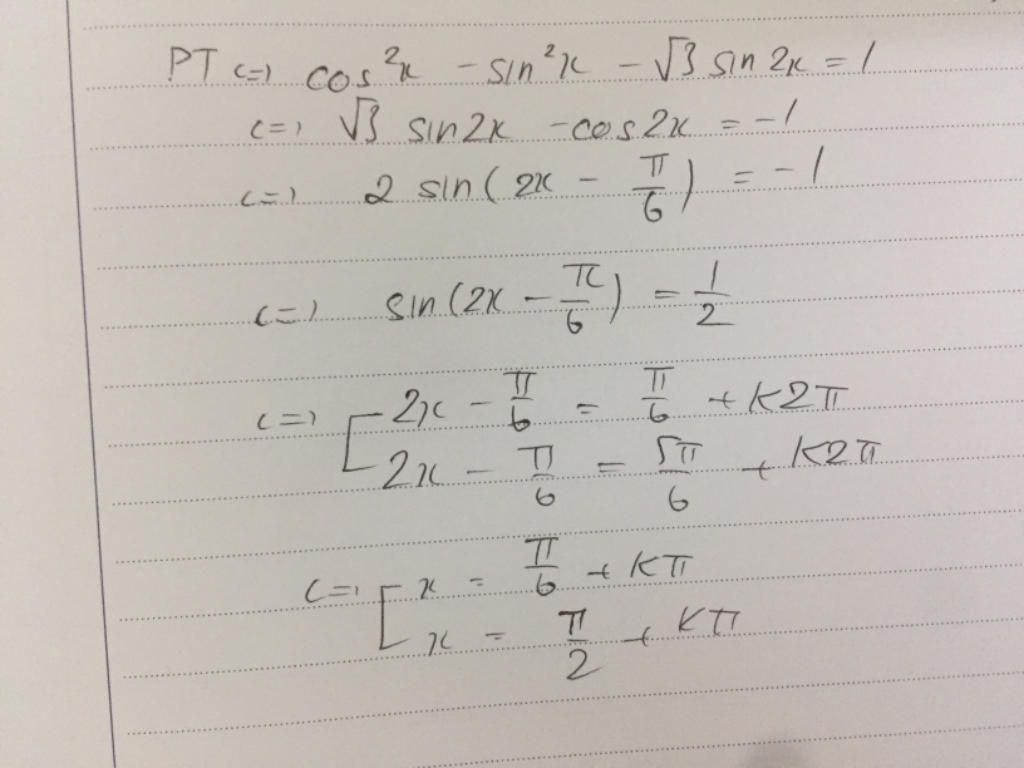 PT <=> cos²x - sin²x - √3 sin 2x = 1
<=> √3 sin2x - cos2x = -1
<=> 2 sin(2x - π/6) = -1
<=> sin(2x - π/6) = 1/2
<=> [ 2x - π/6 = π/6 + K2π
2x - π/6 = 5π/6 + K2π
<=> [ x = π/6 + Kπ
x = π/2 + Kπ